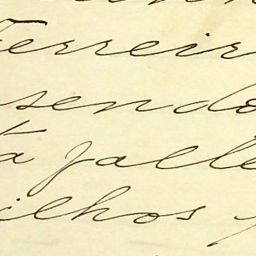 Ferreir
sendo
a falle
ilhos